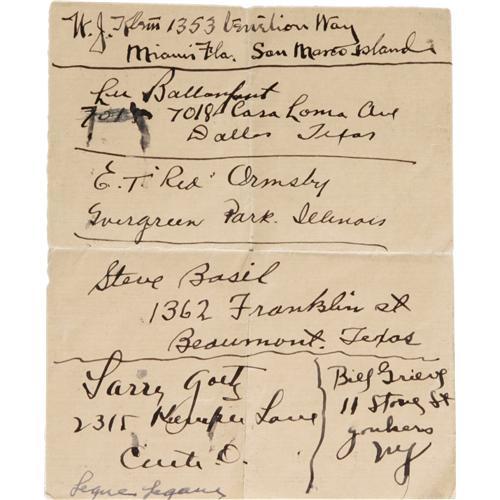 W. J. Klem 1353 Venetion Way
Miami Fla. San Marco Island
Lee Ballanfant
7018 7018 Casa Loma Ave
Dallas Texas
E. T "Red" Ormsby
Evergreen Park. Illinois
Steve Basil
1362 Franklin st
Beaumont. Texas
Larry Goetz
2315 Kemper Lane
Cinti O.
Bill Grieve
11 Stone St
Yonkers
NY